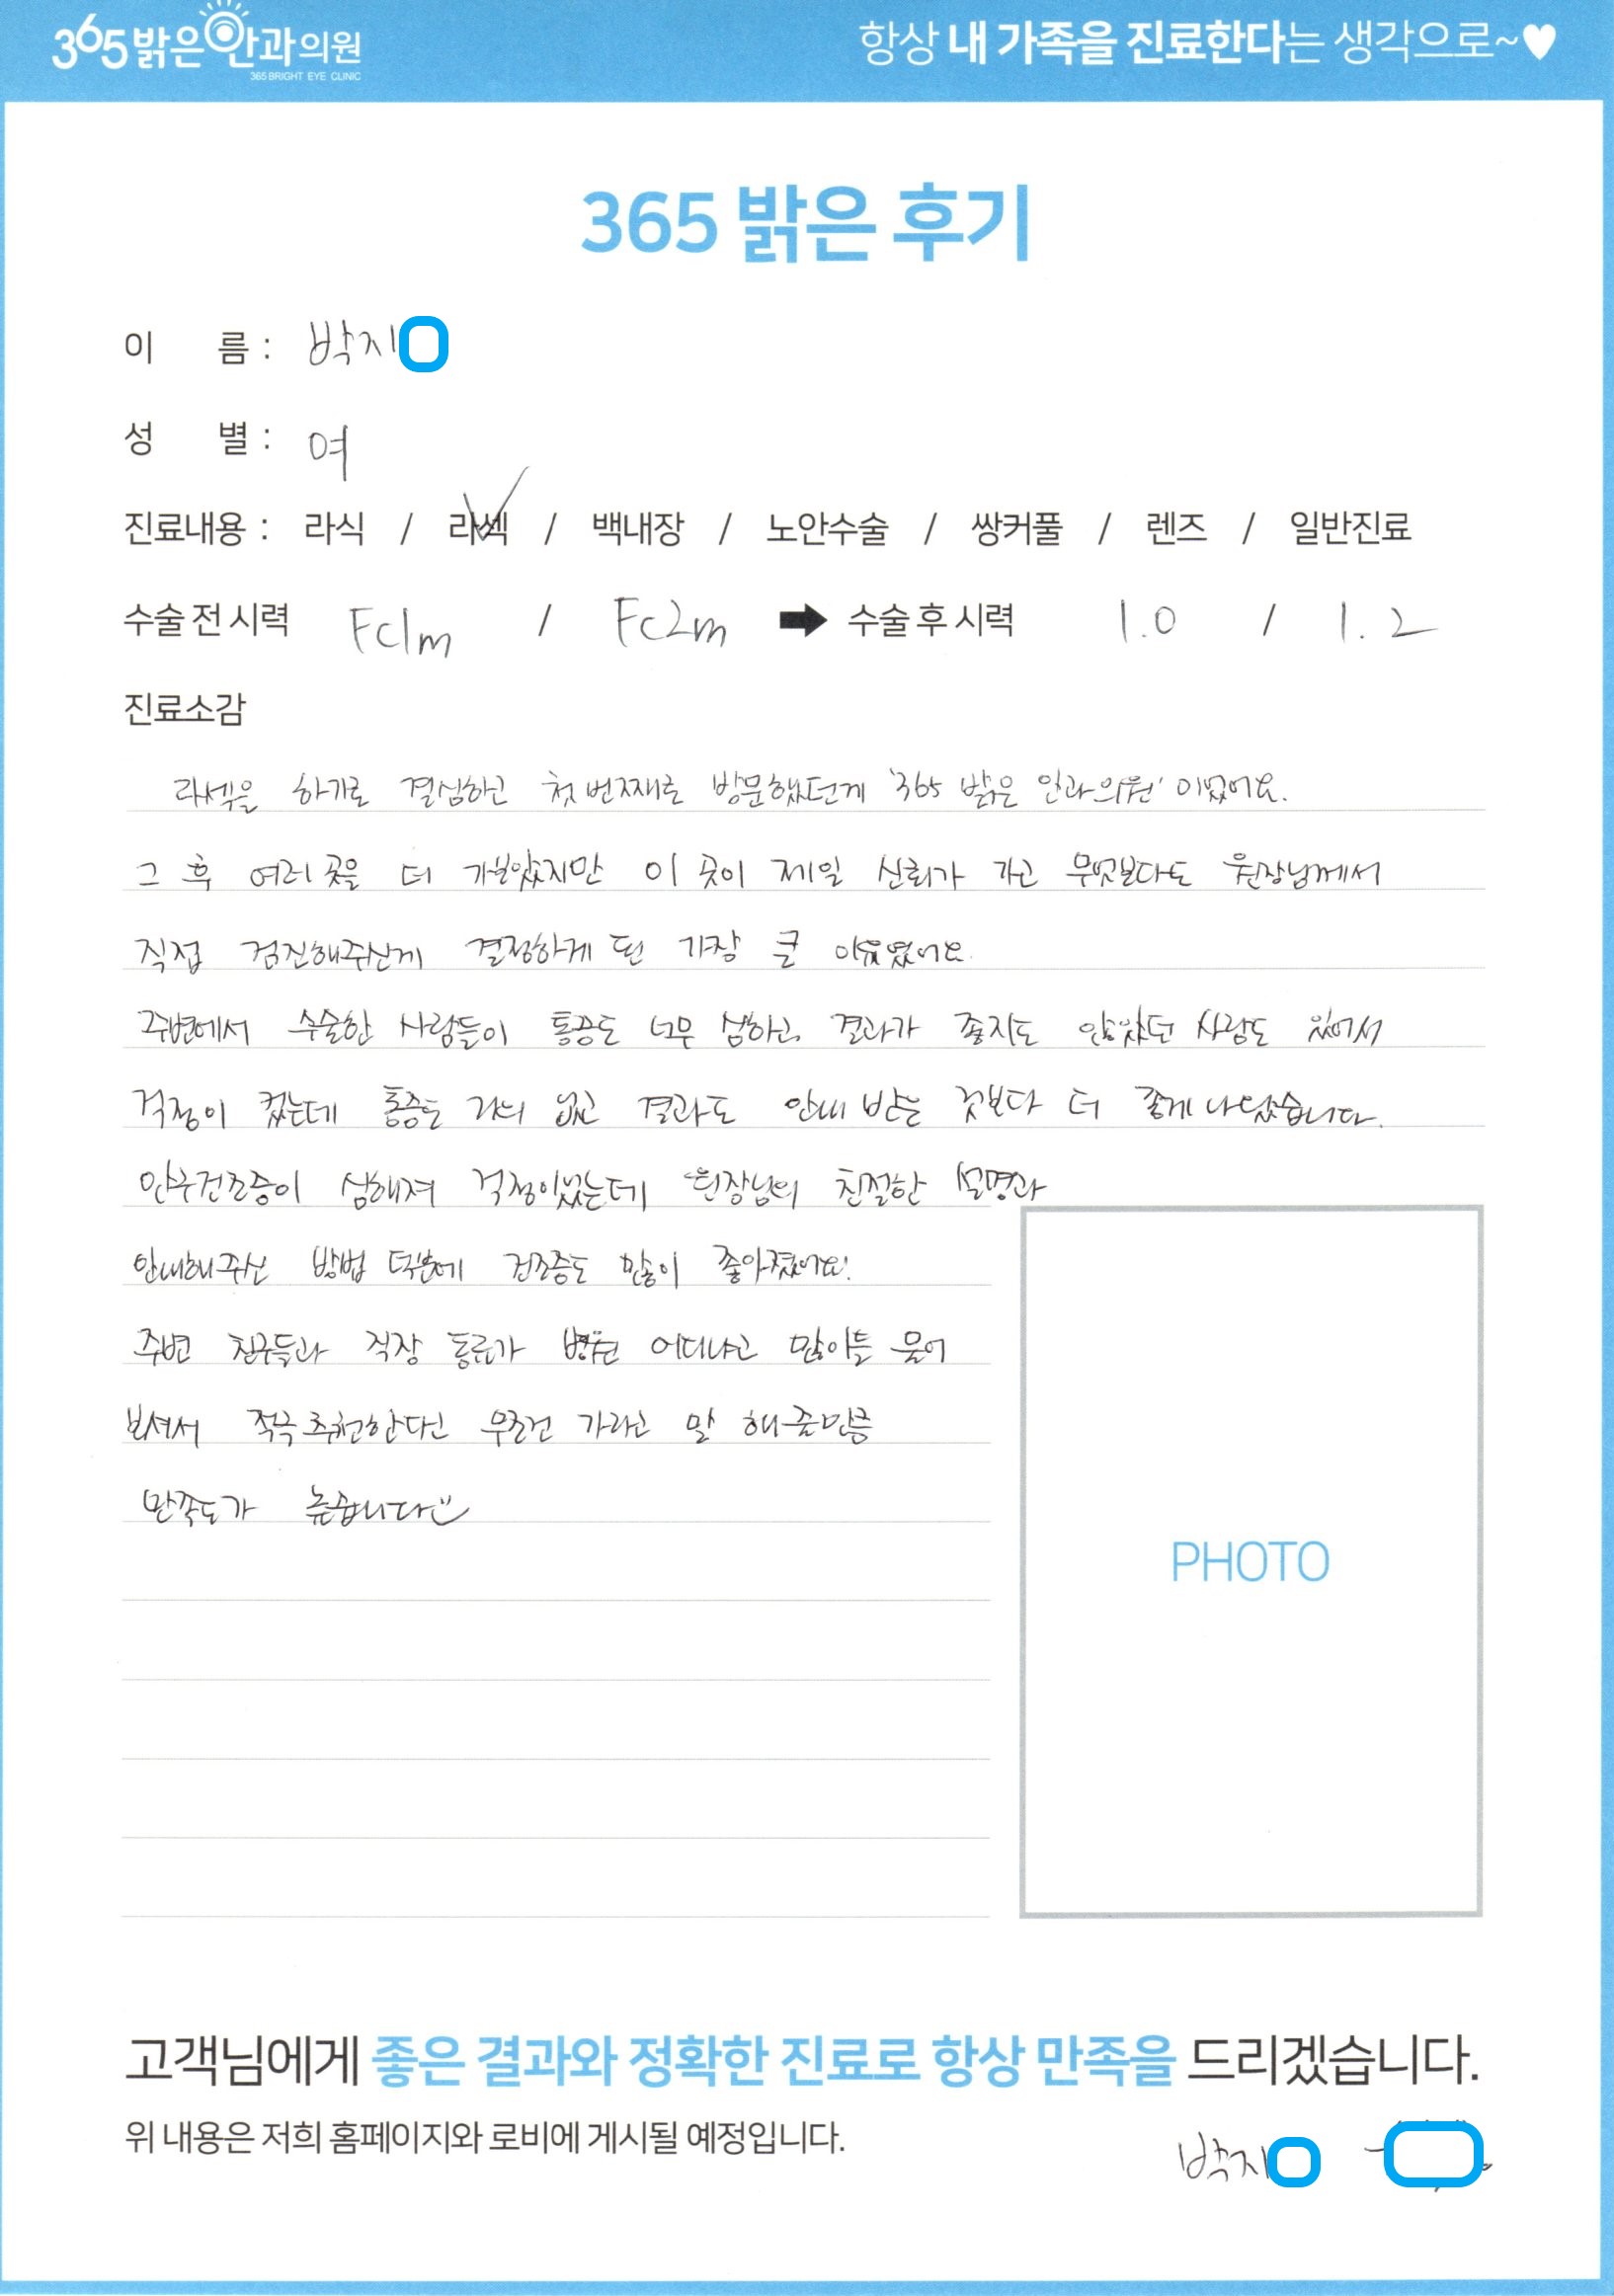 365밝은안과의원
365 BRIGHT EYE CLINIC
항상 내 가족을 진료한다는 생각으로~♥
365 밝은 후기
이 름 : 박지
성 별 : 여
진료내용 : 라식 / 라섹 / 백내장 / 노안수술 / 쌍커풀 / 렌즈 / 일반진료
수술 전 시력 Fc1m / Fc2m ➡ 수술 후 시력 1.0 / 1.2
진료소감
라섹을 하기로 결심하고 첫 번째로 방문했던게 '365 밝은 안과의원' 이었어요.
그 후 여러 곳을 더 가보았지만 이 곳이 제일 신뢰가 가고 무엇보다도 원장님께서
직접 검진해주신게 결정하게 된 가장 큰 이유였어요.
주변에서 수술한 사람들이 통증도 너무 심하고, 결과가 좋지도 않았던 사람도 있어서
걱정이 컸는데 통증도 거의 없고 결과도 안내 받은 것보다 더 좋게 나왔습니다.
안구건조증이 심해져 걱정이었는데 원장님의 친절한 설명과
안내해주신 방법 덕분에 건조증도 많이 좋아졌어요!
주변 친구들과 직장 동료가 병원 어디냐고 많이들 물어
보셔서 적극 추천한다고 무조건 가라고 말 해줄만큼
만족도가 높습니다
PHOTO
고객님에게 좋은 결과와 정확한 진료로 항상 만족을 드리겠습니다.
위 내용은 저희 홈페이지와 로비에 게시될 예정입니다.
박지